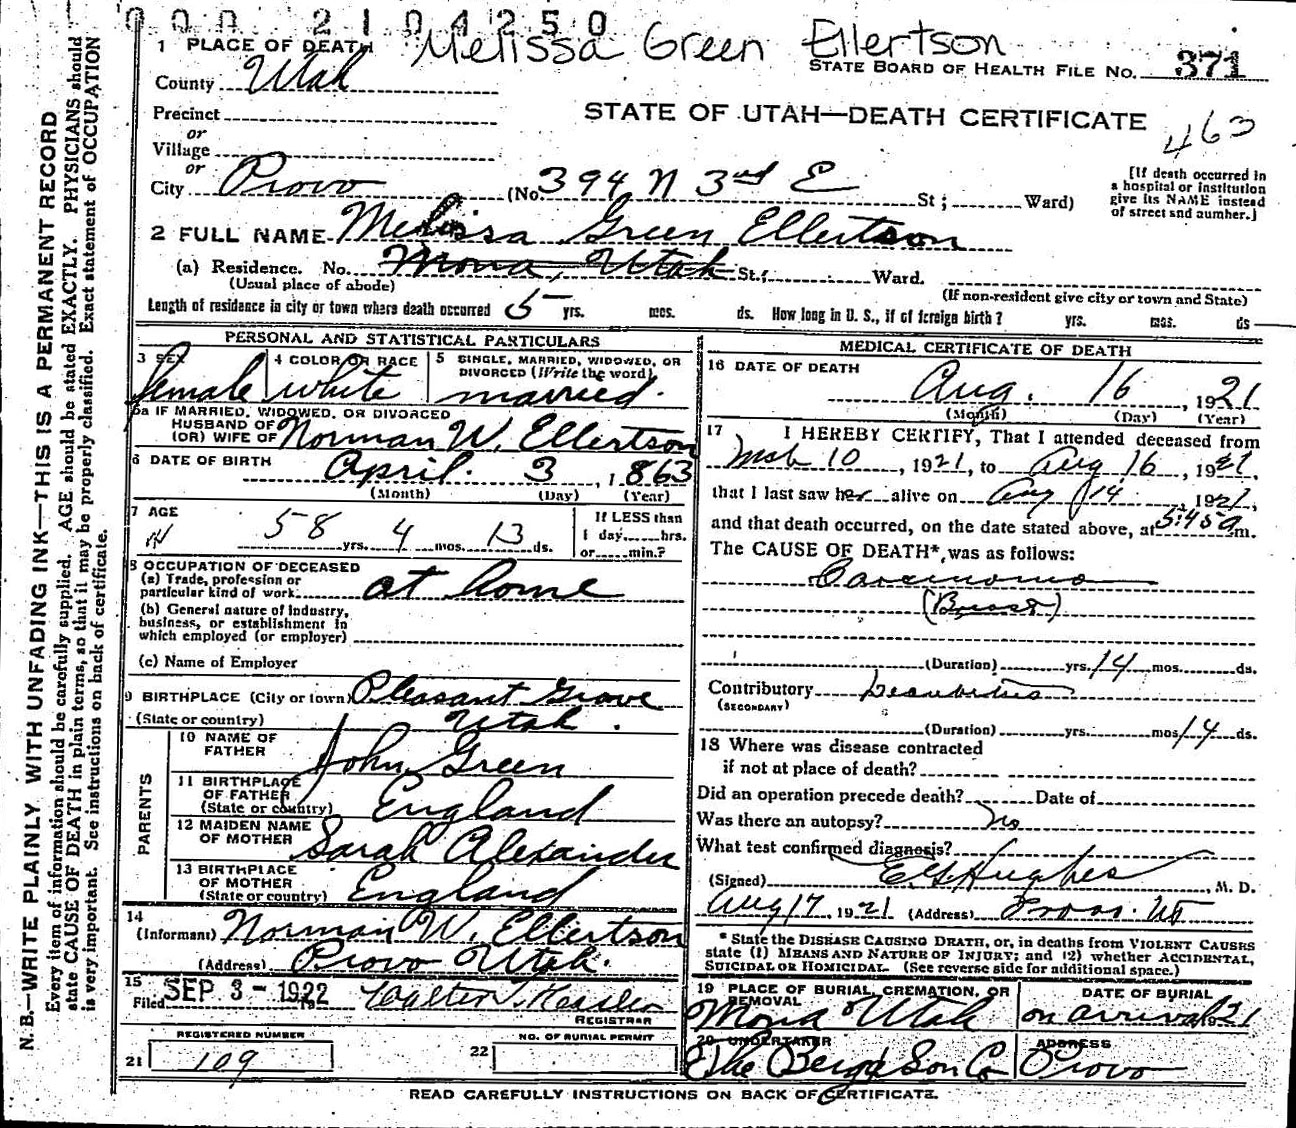 000 2104250
Melissa Green Ellertson
1 PLACE OF DEATH
STATE BOARD OF HEALTH FILE NO. 371
County Utah
STATE OF UTAH—DEATH CERTIFICATE
463
Precinct
or
Village
or
City Provo (No. 394 N 3rd E St; Ward)
[If death occurred in
a hospital or institution
give its NAME instead
of street snd aumher.]
2 FULL NAME Melissa Green Ellertson
(a) Residence. No. Mona, Utah St; Ward.
(Usual place of abode)
(If non-resident give city or town and State)
Length of residence in city or town where death occurred 5 yrs. mos. ds. How long in U. S., if of foreign birth? yrs. mos. ds
PERSONAL AND STATISTICAL PARTICULARS
3 SEX female
4 COLOR OR RACE white
5 SINGLE, MARRIED, WIDOWED, OR
DIVORCED (Write the word)
married.
5a IF MARRIED, WIDOWED, OR DIVORCED
HUSBAND OF
(OR) WIFE OF Norman W. Ellertson
6 DATE OF BIRTH April 3, 1863
(Month) (Day) (Year)
7 AGE
58 yrs. 4 mos. 13 ds.
If LESS than
1 day hrs.
or min.?
8 OCCUPATION OF DECEASED
(a) Trade, profession or
particular kind of work at home
(b) General nature of industry,
business, or establishment in
which employed (or employer)
(c) Name of Employer
9 BIRTHPLACE (City or town) Pleasant Grove
(State or country) Utah.
PARENTS
10 NAME OF
FATHER John Green
11 BIRTHPLACE
OF FATHER
(State or country) England
12 MAIDEN NAME
OF MOTHER Sarah Alexander
13 BIRTHPLACE
OF MOTHER
(State or country) England
14
(Informant) Norman W. Ellertson
(Address) Provo Utah.
15
Filed SEP 3 - 1922 Walter
REGISTRAR
REGISTERED NUMBER
21 109
NO. OF BURIAL PERMIT
22
MEDICAL CERTIFICATE OF DEATH
16 DATE OF DEATH
Aug. 16, 1921
(Month) (Day) (Year)
17 I HEREBY CERTIFY, That I attended deceased from
Mch 10, 1921, to Aug 16, 1921,
that I last saw her alive on Aug 14, 1921,
and that death occurred, on the date stated above, at 5:45 a m.
The CAUSE OF DEATH*, was as follows:
Carcinoma
(Breast)
(Duration) yrs. 14 mos. ds.
Contributory
(SECONDARY)
(Duration) yrs. mos. 14 ds.
18 Where was disease contracted
if not at place of death?
Did an operation precede death? Date of
Was there an autopsy? No
What test confirmed diagnosis?
(Signed) E G Hughes, M. D.
Aug 17, 1921 (Address) Provo. Ut
* State the DISEASE CAUSING DEATH, or, in deaths from VIOLENT CAUSES
state (1) MEANS AND NATURE OF INJURY; and (2) whether ACCIDENTAL,
SUICIDAL OR HOMICIDAL. (See reverse side for additional space.)
19 PLACE OF BURIAL, CREMATION, OR
REMOVAL
Mona Utah
DATE OF BURIAL
on arrival 1921
20 UNDERTAKER
The Berg & Son Co
ADDRESS
Provo
READ CAREFULLY INSTRUCTIONS ON BACK OF CERTIFICATE.
N. B.—WRITE PLAINLY, WITH UNFADING INK—THIS IS A PERMANENT RECORD
Every item of information should be carefully supplied. AGE should be stated EXACTLY. PHYSICIANS should
state CAUSE OF DEATH in plain terms, so that it may be properly classified. Exact statement of OCCUPATION
is very important. See instructions on back of certificate.